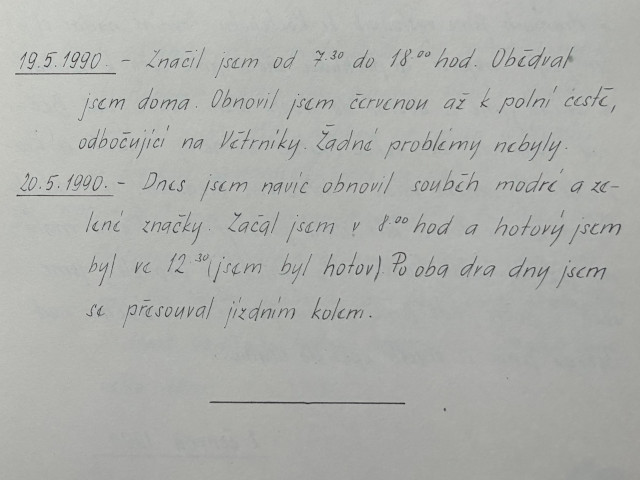 19.5.1990. - Značil jsem od 7.30 do 18.00 hod. Obědval
jsem doma. Obnovil jsem červenou až k polní cestě,
odbočující na Větrníky. Žádné problémy nebyly.
20.5.1990. - Dnes jsem navíc obnovil souběh modré a ze-
lené značky. Začal jsem v 8.00 hod a hotový jsem
byl ve 12 30 (jsem byl hotov). Po oba dva dny jsem
se přesouval jízdním kolem.